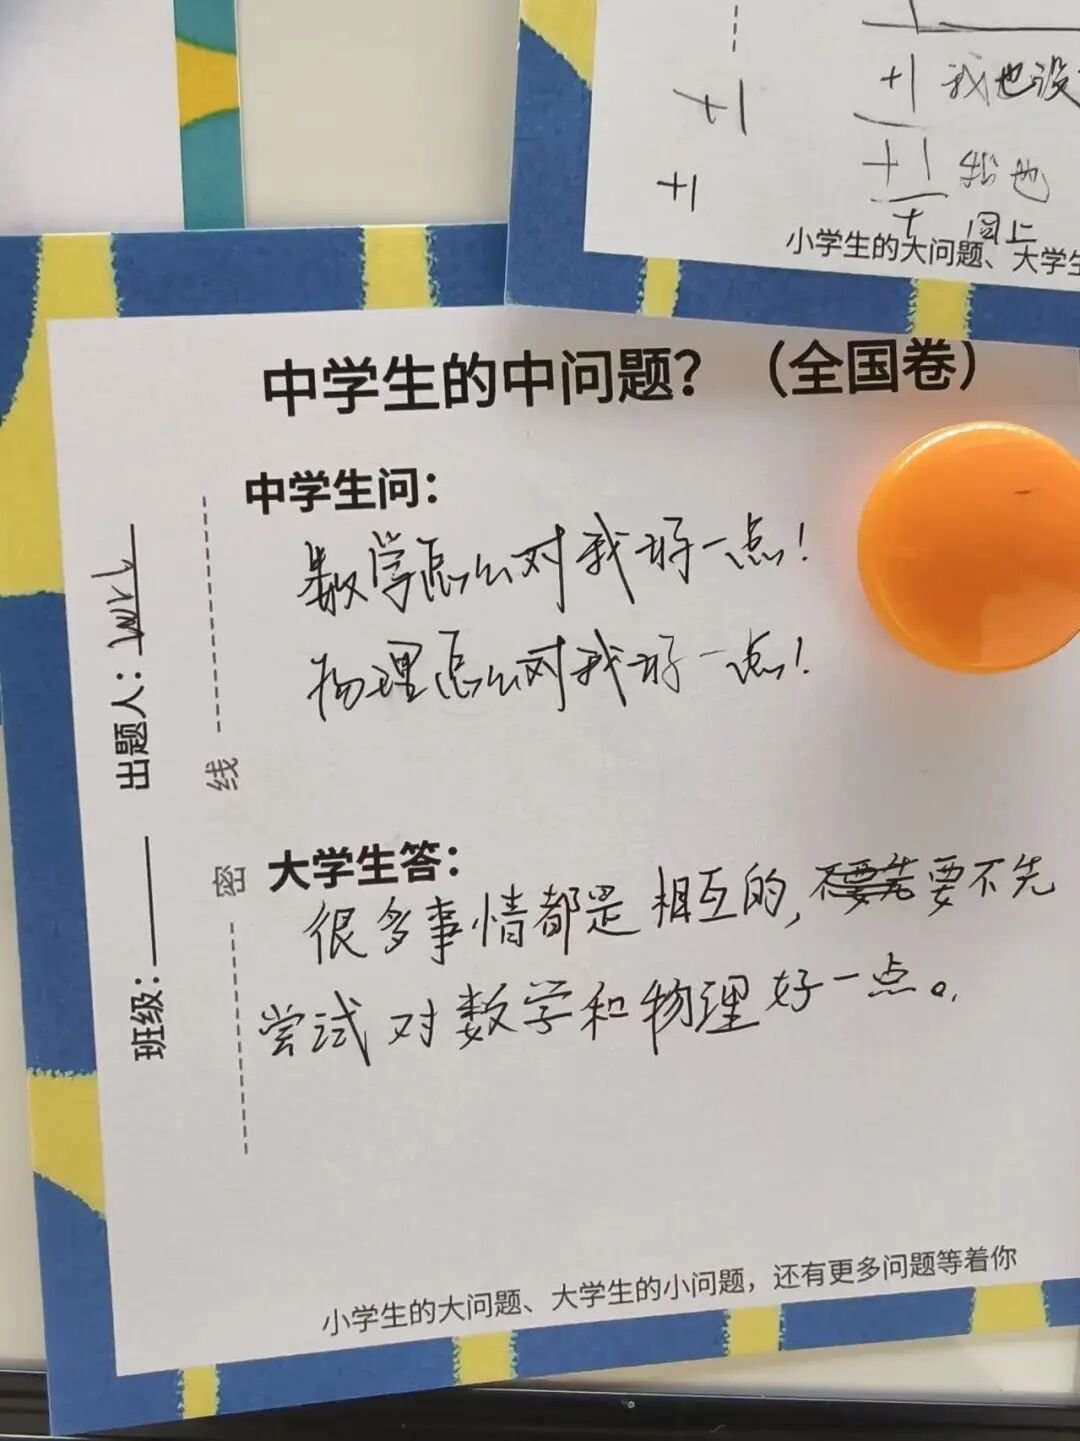 +1
+1
+1 我也没
+1 我也
+ 同上
小学生的大问题、大学生
中学生的中问题？（全国卷）
中学生问：
数学怎么对我好一点！
物理怎么对我好一点！
大学生答：
很多事情都是相互的，要不先
尝试对数学和物理好一点。
出题人：
班级：
密 线
小学生的大问题、大学生的小问题，还有更多问题等着你